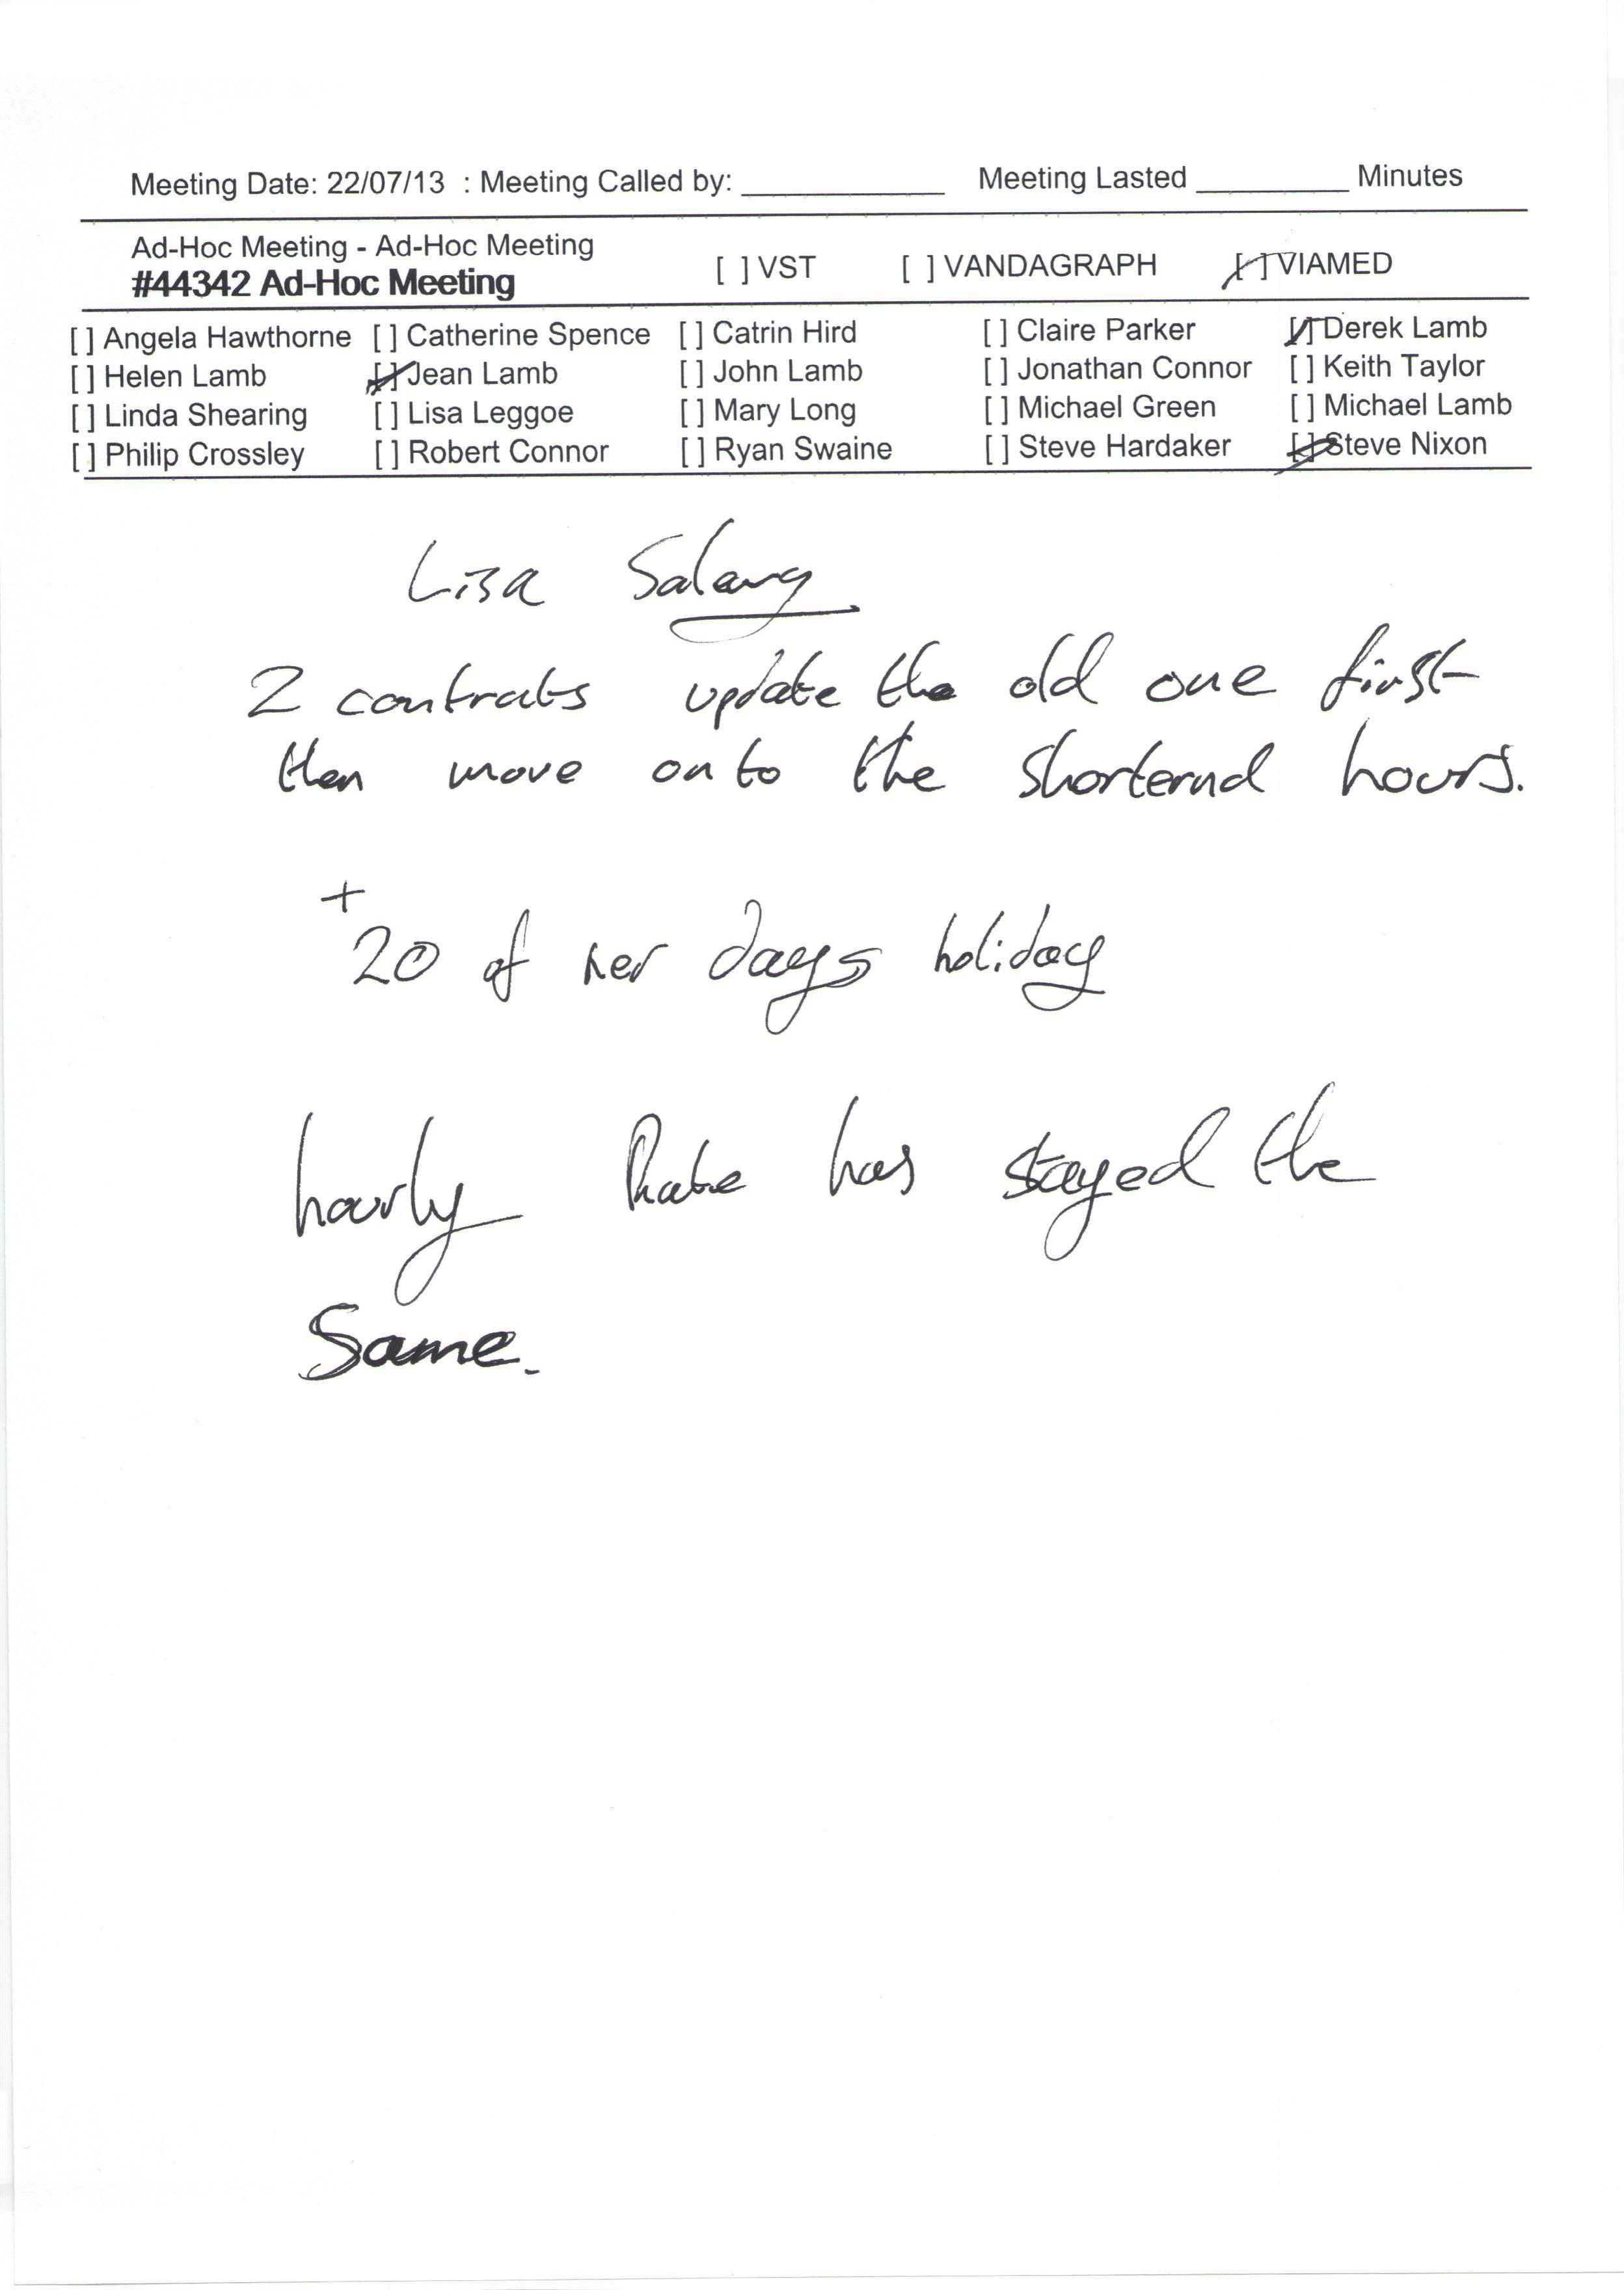 Meeting Date: 22/07/13 : Meeting Called by: ____________ Meeting Lasted _________ Minutes
Ad-Hoc Meeting - Ad-Hoc Meeting
#44342 Ad-Hoc Meeting [ ] VST [ ] VANDAGRAPH [✓] VIAMED
[ ] Angela Hawthorne [ ] Catherine Spence [ ] Catrin Hird [ ] Claire Parker [✓] Derek Lamb
[ ] Helen Lamb [✓] Jean Lamb [ ] John Lamb [ ] Jonathan Connor [ ] Keith Taylor
[ ] Linda Shearing [ ] Lisa Leggoe [ ] Mary Long [ ] Michael Green [ ] Michael Lamb
[ ] Philip Crossley [ ] Robert Connor [ ] Ryan Swaine [ ] Steve Hardaker [✓] Steve Nixon
Lisa Salary
2 contrats update the old one first
then move onto the shorternd hours.
+
20 of her days holiday
hourly Rate has stayed the
Same.